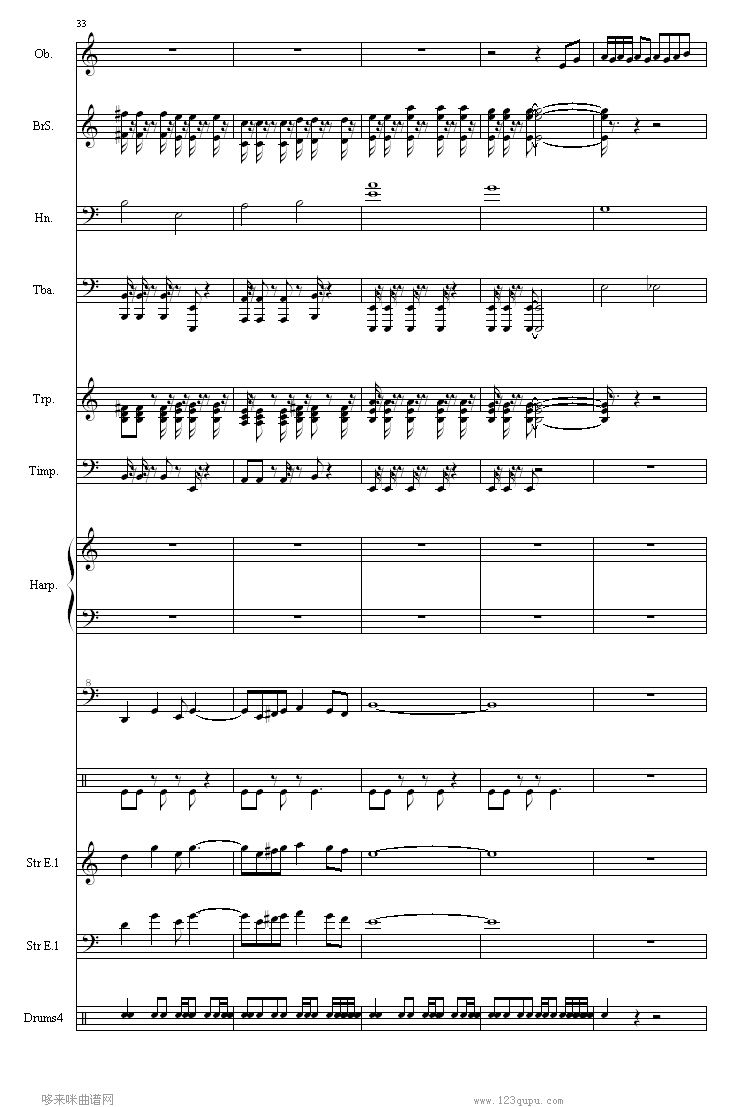 33
Ob.
BrS.
Hn.
Tba.
Trp.
Timp.
Harp.
8
Str E.1
Str E.1
Drums4
哆来咪曲谱网
www.123qupu.com